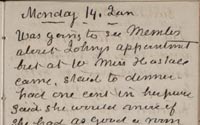 Monday 14. Jan
Was going to see
about Johnys appointment
but at 10 Miss
came, staid to dinner
had one cent in her purse
said she would
she had as good a